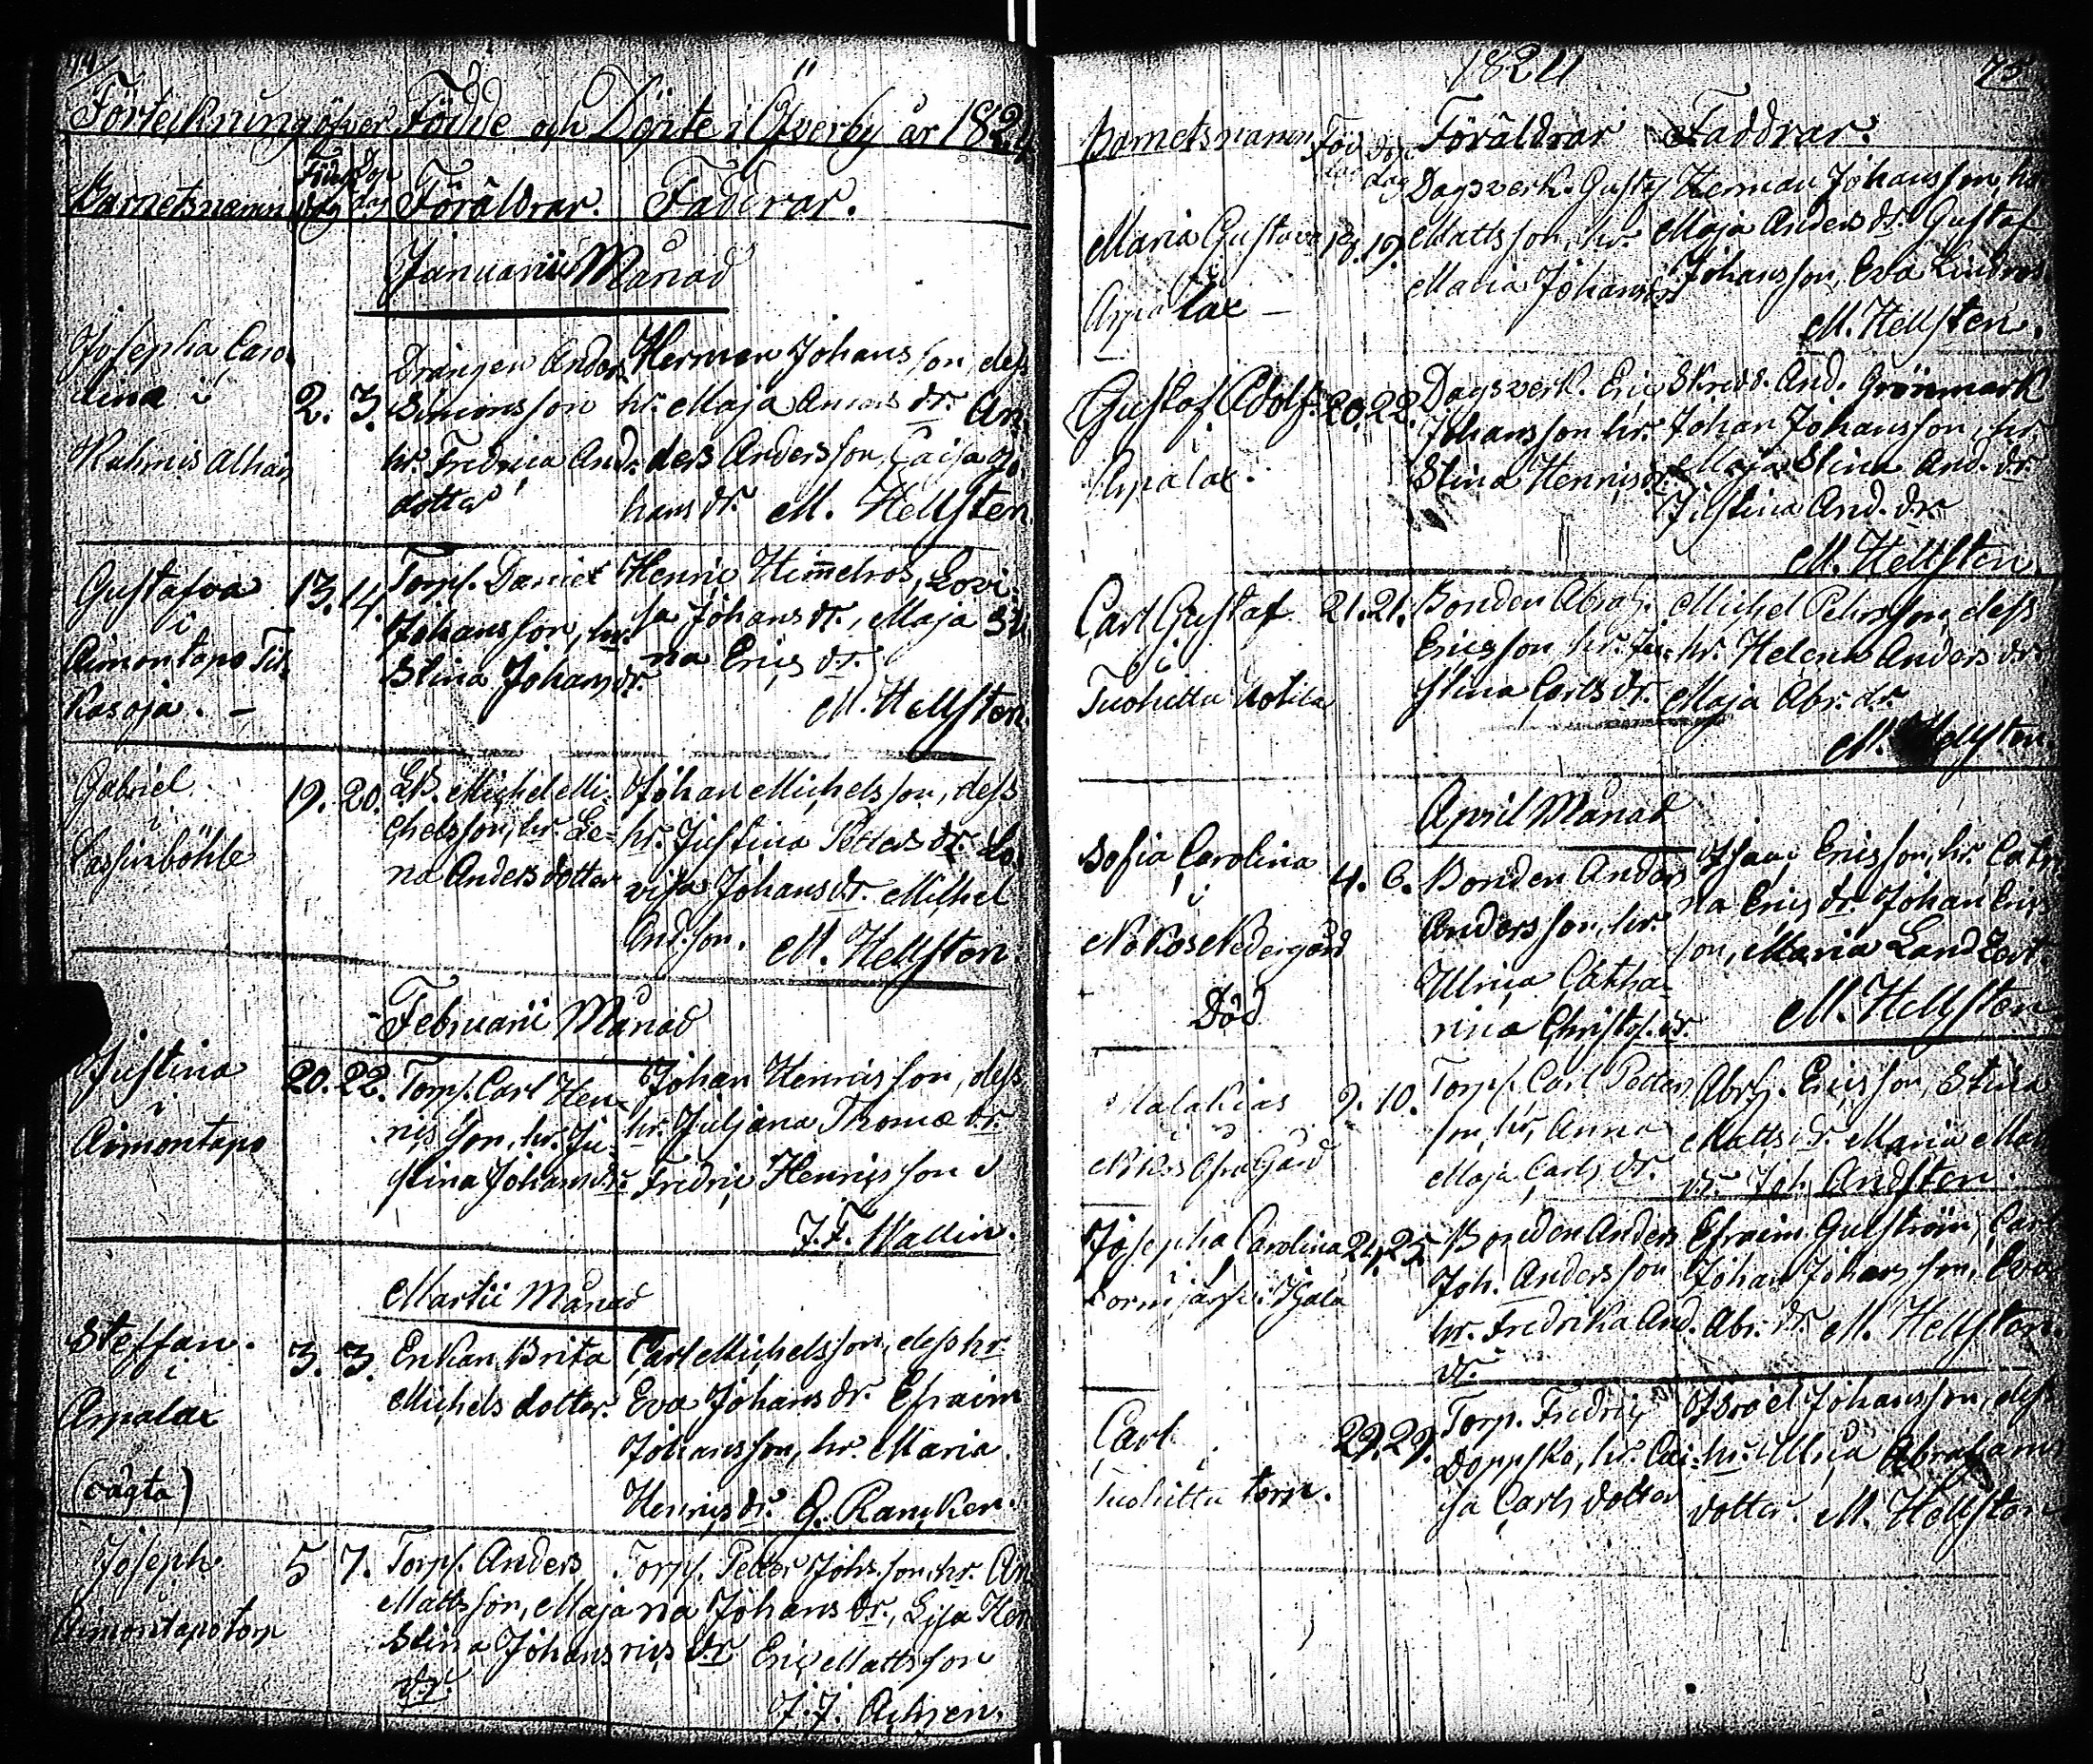 Förteckning öfver Födde och Döpte i Öfverby år 1824
Barnets namn Föd. dag Döp. dag Föräldrar. Faddrar.
Januarii Månad
Josepha Caro-
lina i
2. 3.
Drängen Anders
Simonsson
hr. Fredrica And.
dotter
Herman Johansson, dess
hr. Maja Anders dr. An-
ders Andersson, Caisa Jo-
hans dr. M. Hellsten.
Gustafva
i
Aimontapo Tik-
kasoja. –
13. 14.
Torp. Daniel
Johansson, hr.
Stina Johans dr.
Henric Himmelros, Lovi-
sa Johans dr., Maja Sti-
na Erics dr.
M. Hellsten.
Gabriel
i
Lassinböhle
19. 20.
Michel Mi-
chelsson, hr. Le-
na Andersdotter
Johan Michelsson, dess
hr. Justina Petters dr. Lo-
visa Johans dr. Michel
And.son. M. Hellsten
Februarii Månad
Justina
i
Aimontapo
20. 22.
Torp. Carl Hen-
ricsson, hr. Ju-
stina Johans dr.
Johan Henricsson, dess
hr. Juljana Thomæ dr.
Fredric Henricsson
J. F. Wallin.
Martii Månad
Steffan.
i
Arpalax
(oägta)
3. 3.
Enkan Brita
Michels dotter.
Carl Michelsson, dess hr
Eva Johans dr. Efraim
Johansson, hr. Maria
Henrics dr. G. Rancken.
Joseph
Aimontapo torp
5 7.
Torp. Anders
Mattsson, Maja
Stina Johans
dr.
Torp. Petter Johs.son, hr. An-
na Johans dr., Lisa Hen-
rics dr. Eric Mattsson
J. J.
1824 75
Barnets namn Föd. dag Döp. dag Föräldrar Faddrar.
Maria Gustava
i
Arpalax –
18. 19.
Dagsverk. Gustaf
Mattsson, hr.
Maria Johans dr
Herman Johansson, hr
Maja Anders dr. Gustaf
Johansson, Eva Lindros
M. Hellsten.
Gustaf Adolf
i
Arpalax.
20. 22.
Dagsverk. Eric
Johansson hr.
Stina Henrics dr.
Skredd. And. Grönmark
Johan Johansson, hr.
Maja Stina And. dr.
Justina And. dr.
M. Hellsten.
Carl Gustaf
i
Tuohittu
21. 21.
Bonden Abrah.
Ericsson hr. Ju-
stina Carls dr.
Michel Petersson, dess
hr. Helena Anders dr.
Maja Abr. dr.
M. Hellsten.
April Månad
Sofia Carolina
i
Nokos Nedergård
Död
4. 6.
Bonden Anders
Andersson, hr.
Ulrica Catha-
rina Christof. dr.
Isaac Ericsson, hr. Catri-
na Erics dr. Johan Erics-
son, Maria Landtort.
M. Hellsten
Malakias
i
9. 10.
Torp. Carl Petters
son, hr. Anna
Maja Carls dr.
Abrh. Ericsson, Stina
Matts dr. Maria
dr. Joh. Andsten.
Josepha Carolina
i
24. 25.
Bonden Anders
Joh. Andersson
hr. Fredrika And.
dr.
Efraim Gulström, Carl
Johan Johansson, Eva
Abr. dr. M. Hellsten.
Carl
i
Tuohittu torp.
29. 29.
Torp. Fredric
Doppsko, hr. Cai-
sa Carls dotter
Israel Johansson, dess
hr. Ulrica Abrahams
dotter. M. Hellsten